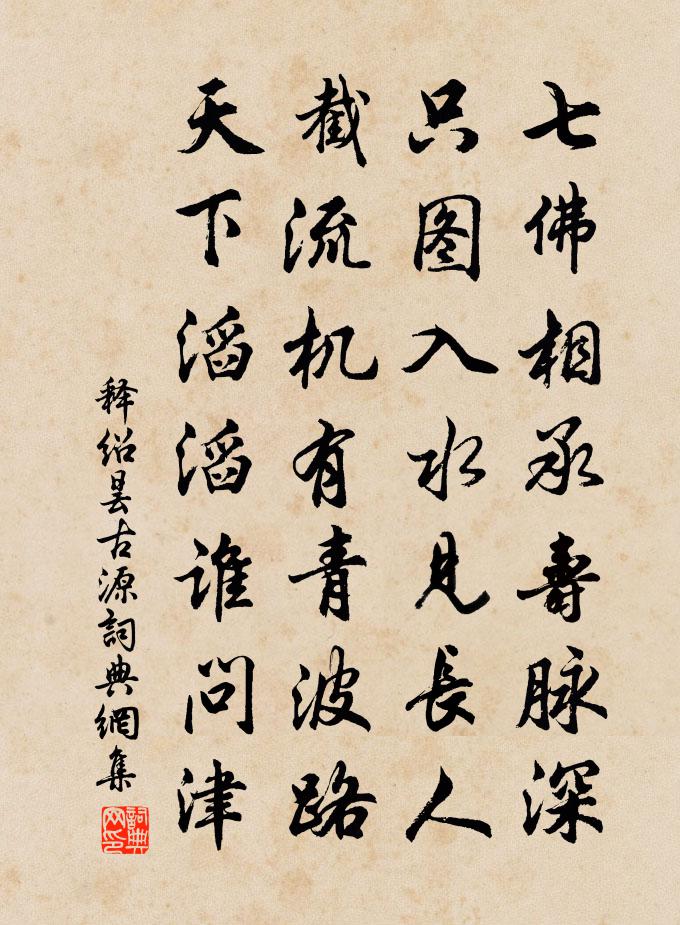 七佛相承寿脉深
只图入水见長人
截流机有青波路
天下滔滔谁问津
释绍昙古源詞典網集
詞典网印